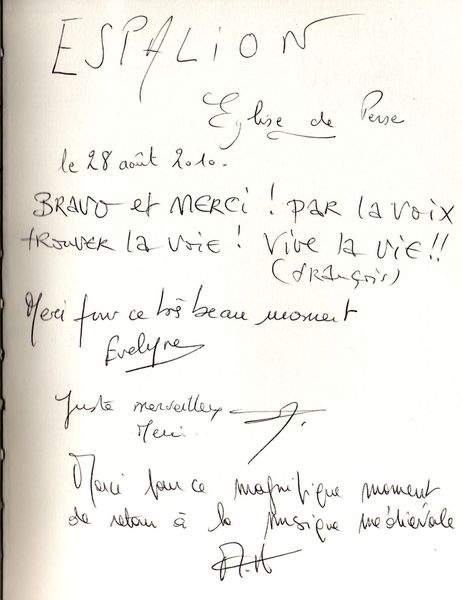 ESPALION
Eglise de Perse
le 28 août 2010.
BRAVO et MERCI ! PAR la voix
trouver la voie ! Vive la vie!!
(FRANÇOIS)
Merci pour ce très beau moment
Evelyne
Juste merveilleux
Merci
Merci pour ce magnifique moment
de retour à la musique médiévale